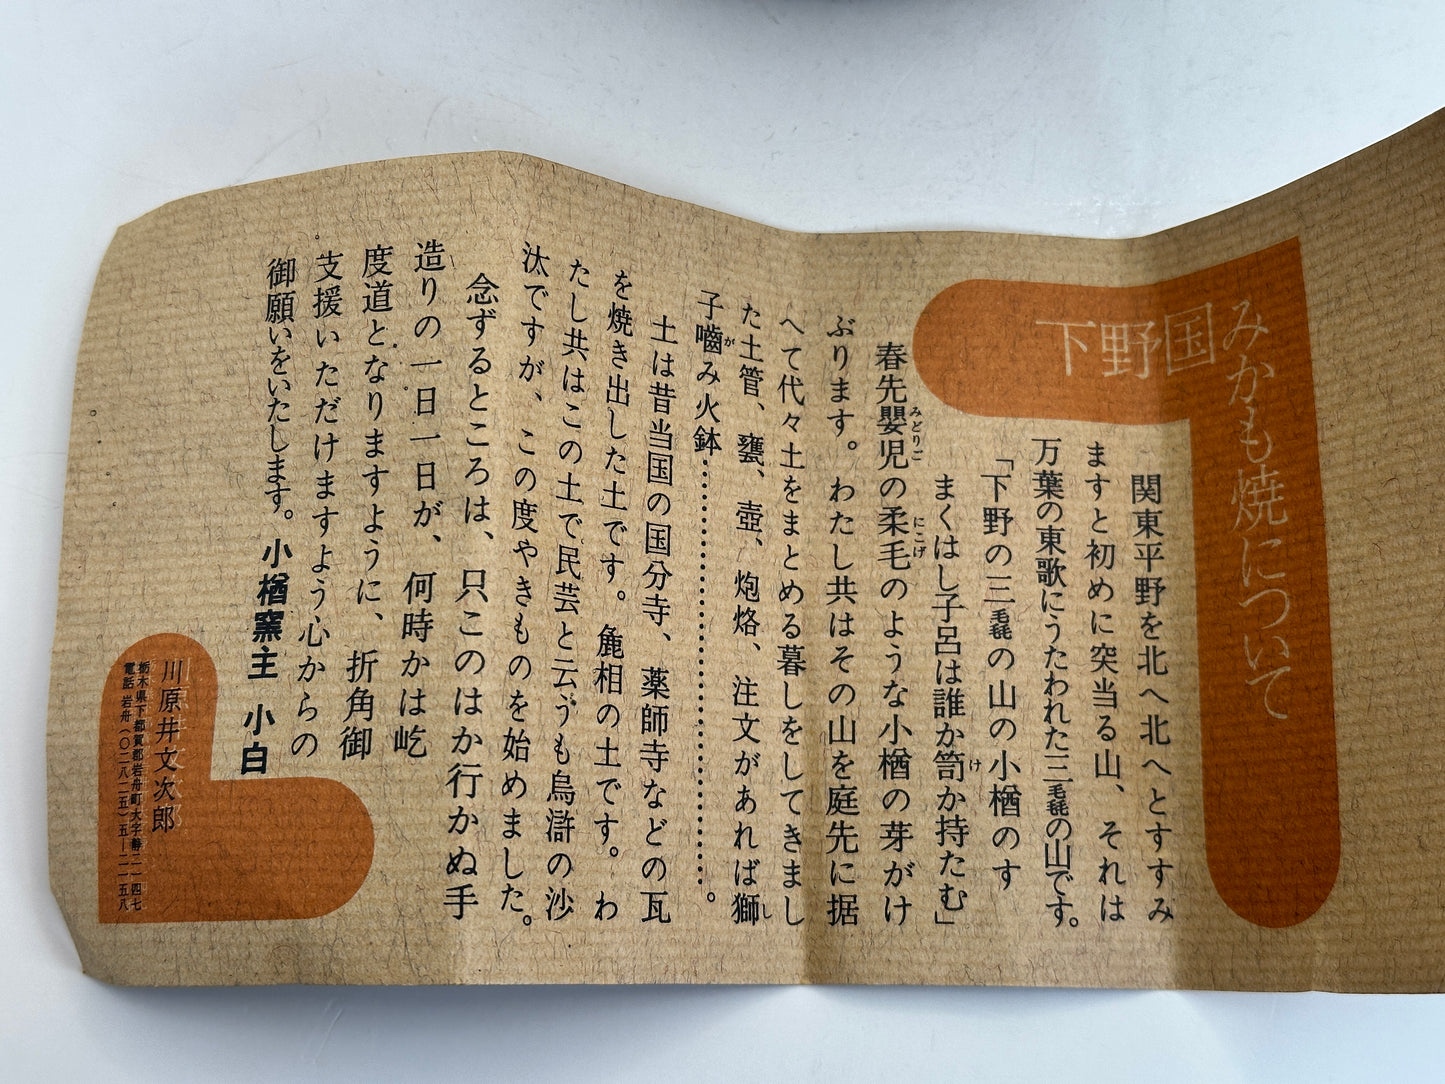 下野国
みかも焼について
関東平野を北へ北へとすすみ
ますと初めに突当る山、それは
万葉の東歌にうたわれた三毳の山です。
「下野の三毳の山の小楢のす
まくはし子呂は誰か笥か持たむ」
け
春先嬰児の柔毛のような小楢の芽がけ
みどりご
にこげ
ぶります。わたし共はその山を庭先に据
へて代々土をまとめる暮しをしてきまし
た土管、甕、壺、炮烙、注文があれば獅
し
子嚙み火鉢……………………。
が
土は昔当国の国分寺、薬師寺などの瓦
を焼き出した土です。麁相の土です。わ
たし共はこの土で民芸と云うも烏滸の沙
汰ですが、この度やきものを始めました。
念ずるところは、只このはか行かぬ手
造りの一日一日が、何時かは屹
度道となりますように、折角御
支援いただけますよう心からの
御願いをいたします。小楢窯主 小白
川原井文次郎
栃木県下都賀郡岩舟町大字静二一四七
電話 岩舟(〇二八二五)五―二一五八